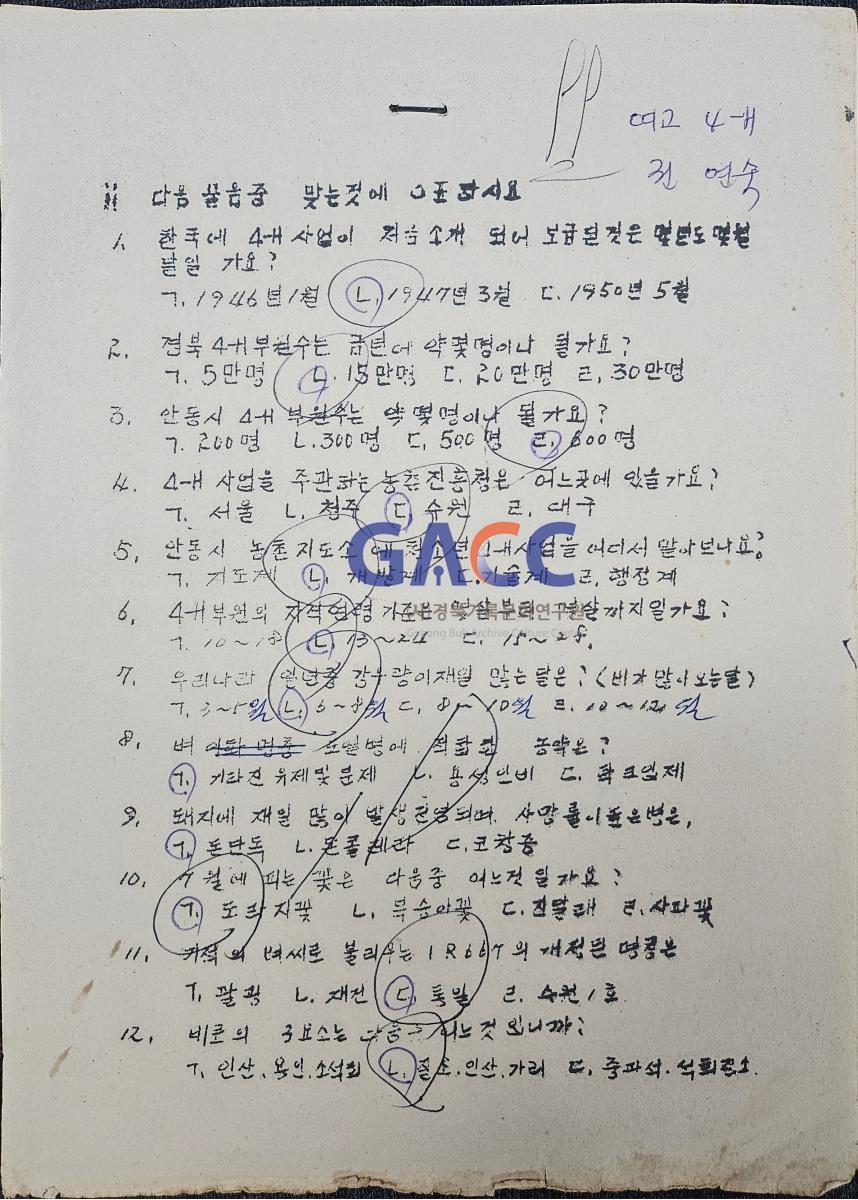 여고 4-H
전 연숙
다음 물음중 맞는것에 ○표하시요
1. 한국에 4-H 사업이 처음 소개 되어 보급된것은 몇년도 몇월
날일 가요?
ㄱ. 1946년 1월 ㄴ. 1947년 3월 ㄷ. 1950년 5월
2. 경북 4-H부원수는 금년에 약몇명이나 될가요?
ㄱ. 5만명 ㄴ. 15만명 ㄷ. 20만명 ㄹ. 30만명
3. 안동시 4-H 부원수는 약 몇명이나 될가요?
ㄱ. 200명 ㄴ. 300명 ㄷ. 500명 ㄹ. 600명
4. 4-H 사업을 주관하는 농촌진흥청은 어느곳에 있을가요?
ㄱ. 서울 ㄴ. 청주 ㄷ. 수원 ㄹ. 대구
GACC
5. 안동시 농촌지도소에 청소년 4-H사업을 어디서 맡아보나요?
ㄱ. 지도계 ㄴ. 개발계 ㄷ. 기술계 ㄹ. 행정계
(사)경북기록문화연구원
Gyeong Buk Archive Culture Center
6. 4-H부원의 자격연령 기준은 몇살부터 몇살까지일가요?
ㄱ. 10~18 ㄴ. 13~24 ㄷ. 15~28.
7. 우리나라 일년중 강우량이재일 많는달은? (비가많이오는달)
ㄱ. 3~5월 ㄴ. 6~8월 ㄷ. 8~10월 ㄹ. 10~12월
8. 벼 도열병에 적합한 농약은?
ㄱ. 키타진 유제및분제 ㄴ. 용성인비 ㄷ. 파크엽제
9. 돼지에 재일 많이 발생전염되며. 사망률이높은병은,
ㄱ. 돈단독 ㄴ. 돈콜레라 ㄷ. 코창증
10. 7월에 피는 꽃은 다음중 어느것 일가요?
ㄱ. 도라지꽃 ㄴ. 복숭아꽃 ㄷ. 진달래 ㄹ. 사과꽃
11. 기적의 벼씨로 불리우는 IR667의 개정된 명칭은
ㄱ. 팔굉 ㄴ. 재건 ㄷ. 통일 ㄹ. 수원1호
12. 비료의 3요소는 다음중 어느것 입니까?
ㄱ. 인산. 용인. 소석회 ㄴ. 질소. 인산. 가리 ㄷ. 중과석. 석회질소.